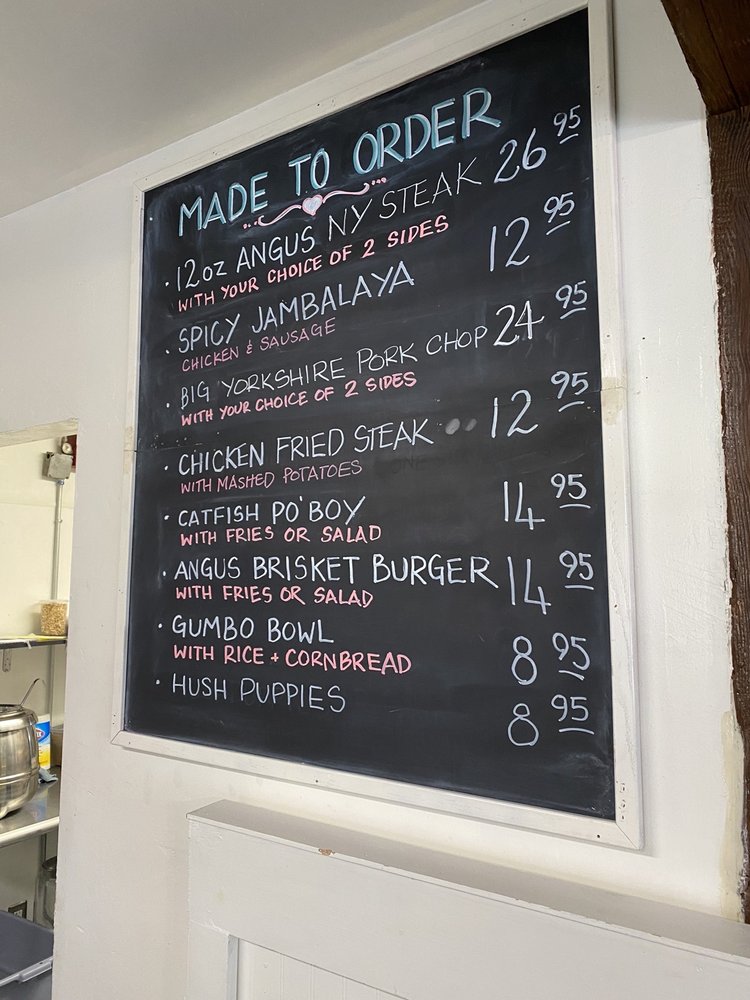 MADE TO ORDER
· 12oz ANGUS NY STEAK 26 95
WITH YOUR CHOICE OF 2 SIDES
· SPICY JAMBALAYA 12 95
CHICKEN & SAUSAGE
· BIG YORKSHIRE PORK CHOP 24 95
WITH YOUR CHOICE OF 2 SIDES
· CHICKEN FRIED STEAK 12 95
WITH MASHED POTATOES
· CATFISH PO'BOY 14 95
WITH FRIES OR SALAD
· ANGUS BRISKET BURGER 14 95
WITH FRIES OR SALAD
· GUMBO BOWL 8 95
WITH RICE + CORNBREAD
· HUSH PUPPIES 8 95